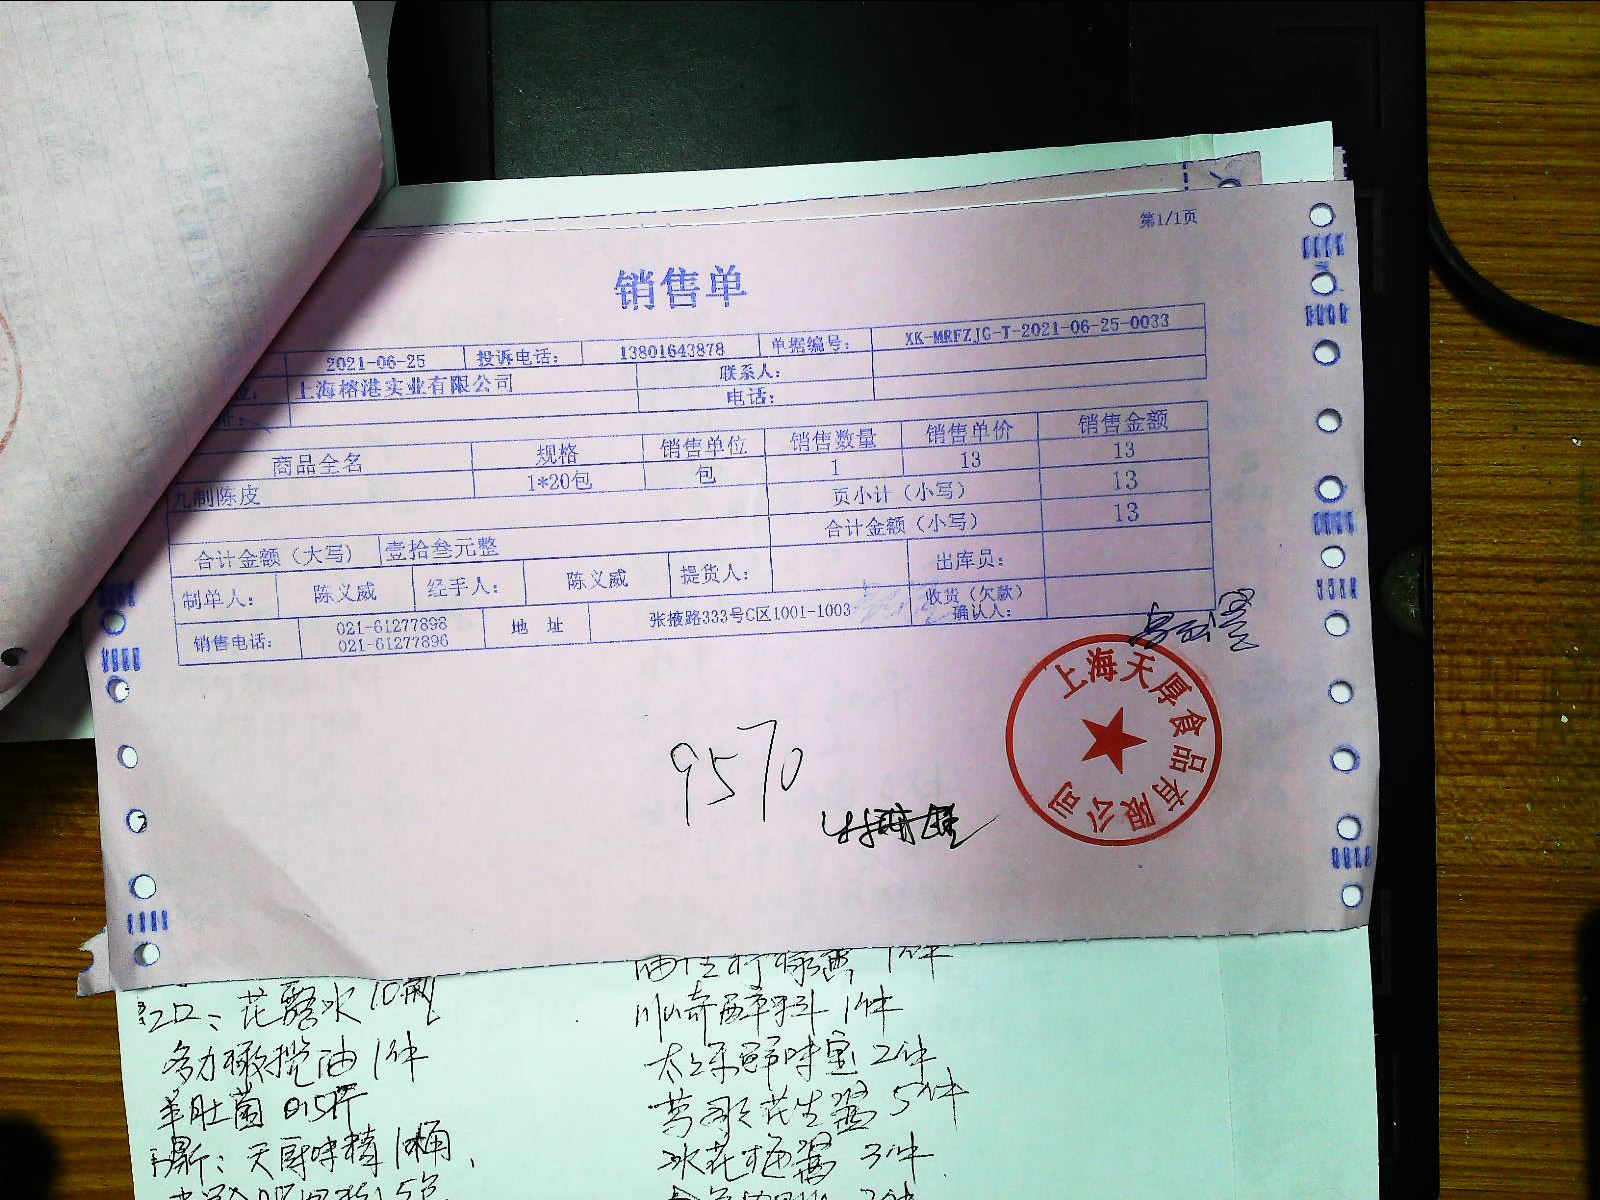 第1/1页
销售单
2021-06-25 投诉电话: 13801643878 单据编号: XK-MRFZJG-T-2021-06-25-0033
上海榕港实业有限公司 联系人:
址: 电话:
商品全名 规格 销售单位 销售数量 销售单价 销售金额
九制陈皮 1*20包 包 1 13 13
页小计（小写） 13
合计金额（大写） 壹拾叁元整 合计金额（小写） 13
制单人: 陈义威 经手人: 陈义威 提货人: 出库员:
销售电话: 021-61277898 地 址 张掖路333号C区1001-1003 收货（欠款）
021-61277896 确认人:
上海天厚食品有限公司
9570
花露水 10瓶
川崎醉料 1件
多力橄榄油 1件
太太乐鲜味宝 2件
羊肚菌
花生酱 5件
天厨味精 1桶
冰花梅酱 3件